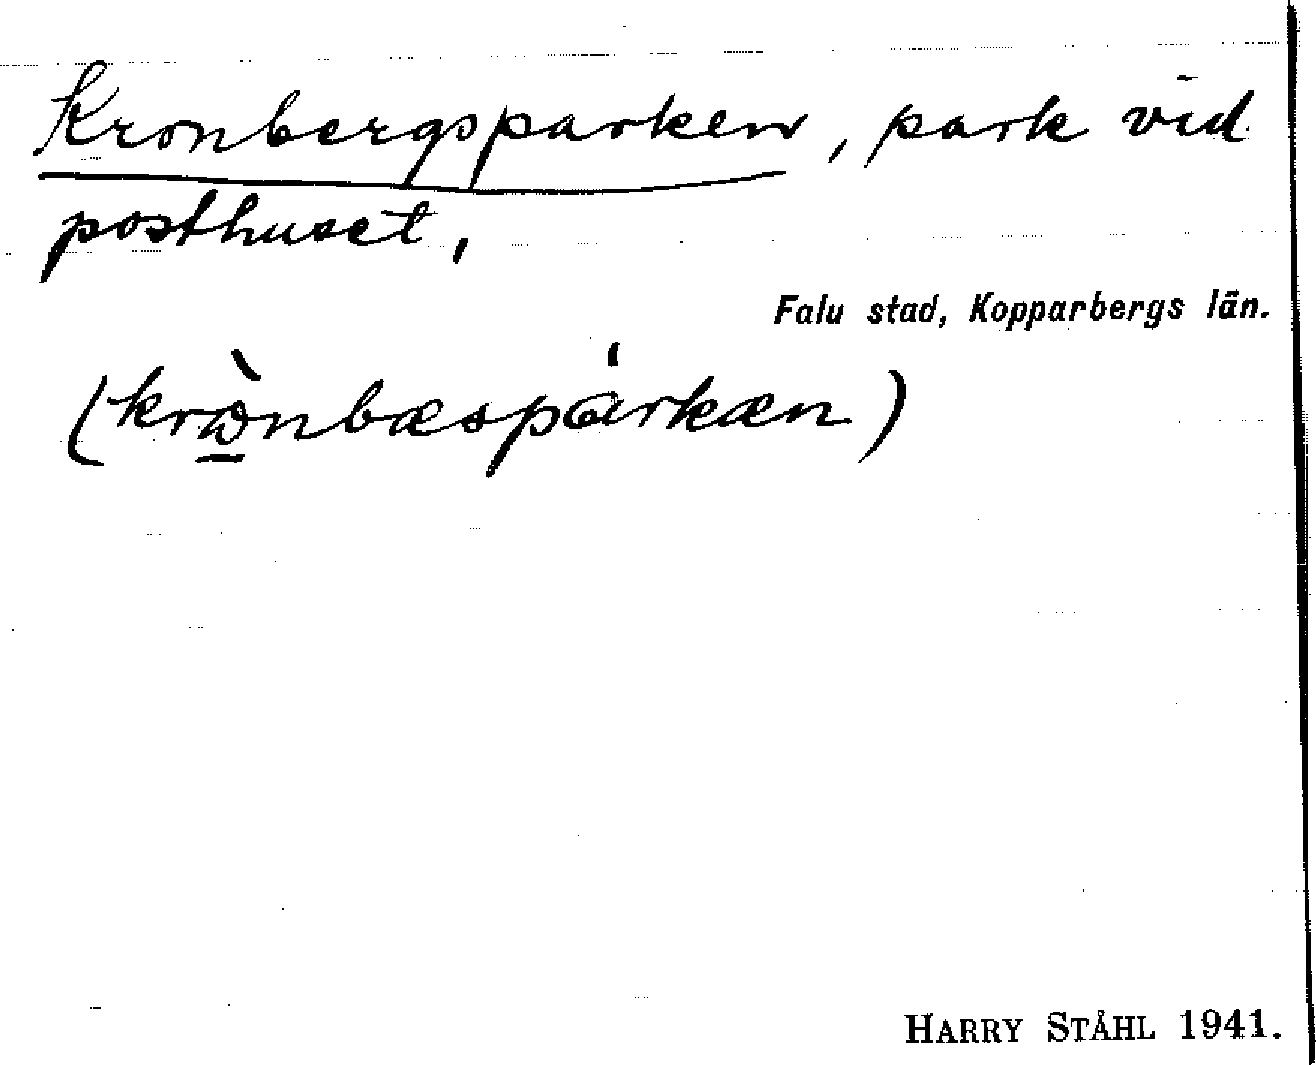 Kronbergsparken, park vid
posthuset,
Falu stad, Kopparbergs län.
(krὼ̱nbæspárkæn)
HARRY STÅHL 1941.